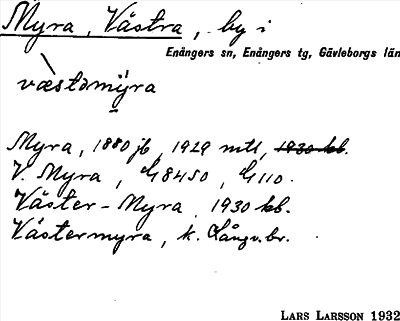 Myra, Västra, by i
Enångers sn, Enångers tg, Gävleborgs län
væstəmÿra
Myra, 1880 jb, 1929 mtl, 1930 kb.
V. Myra, G8450, G110.
Väster-Myra 1930 kb.
Västermyra, k. Långv. br.
LARS LARSSON 1932